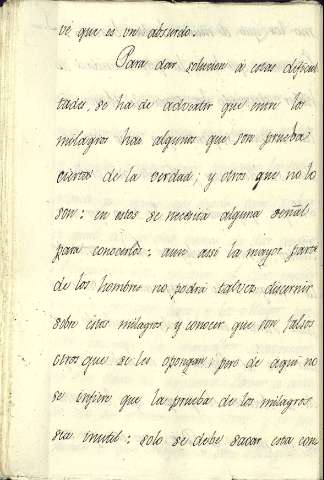 vé que es un absurdo.
Para dar solucion á estas dificul
tades, se ha de advertir que entre los
milagros hai algunos que son prueba
ciertas de la verdad; y otros que no lo
son: en estos se necesita alguna señal
para conocerlos: aun asi la mayor parte
de los hombres no podrá talvez discernir
sobre estos milagros, y conocer que son falsos
otros que se les opongan; pero de aqui no
se infiere que la prueba de los milagros
sea inutil: solo se debe sacar esta con